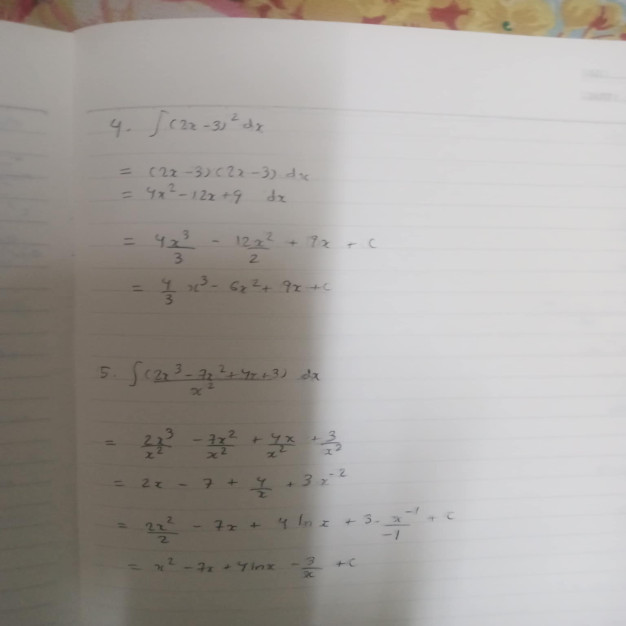 4. ∫(2x-3)² dx
= (2x-3)(2x-3) dx
= 4x²-12x+9 dx
= 4x³/3 - 12x²/2 + 9x + c
= 4/3 x³ - 6x² + 9x + c
5. ∫(2x³-7x²+4x+3)/x² dx
= 2x³/x² - 7x²/x² + 4x/x² + 3/x²
= 2x - 7 + 4/x + 3x⁻²
= 2x²/2 - 7x + 4 ln x + 3. x⁻¹/-1 + c
= x² - 7x + 4 ln x - 3/x + c